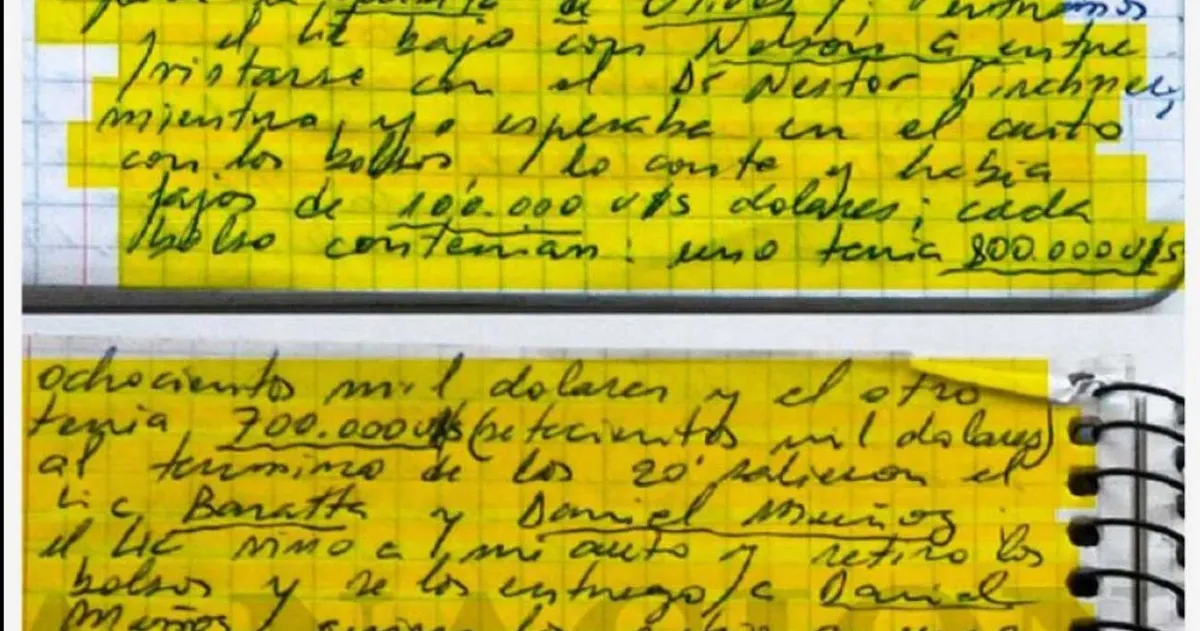 de Olivos), entramos
y el Lic bajo con Nelson a entre
/vistarse con el Dr Nestor Kirchner,
mientras yo esperaba en el auto
con los bolsos, lo conte y habia
fajos de 100.000 U$S dolares; cada
bolso contenian: uno tenia 800.000U$S
ochocientos mil dolares y el otro
tenia 700.000U$S (setecientos mil dolares)
al termino de los 20' salieron el
Lic Baratta y Daniel Muñoz
el Lic vino a mi auto y retiro los
bolsos y se los entrego a Daniel
Muñoz